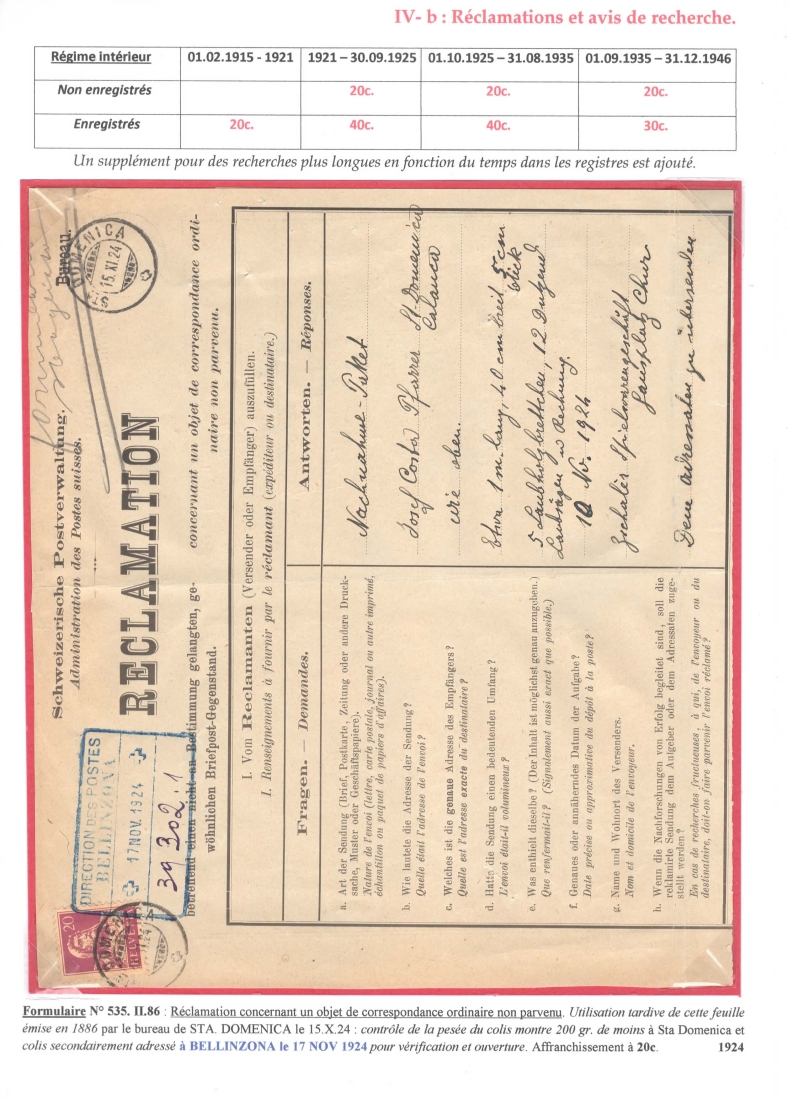 IV- b : Réclamations et avis de recherche.
Régime intérieur 01.02.1915 - 1921 1921 – 30.09.1925 01.10.1925 – 31.08.1935 01.09.1935 – 31.12.1946
Non enregistrés 20c. 20c. 20c.
Enregistrés 20c. 40c. 40c. 30c.
Un supplément pour des recherches plus longues en fonction du temps dans les registres est ajouté.
Schweizerische Postverwaltung.
Administration des Postes suisses.
Bureau.
DOMENICA
15.XI.24
RECLAMATION
DIRECTION DES POSTES
BELLINZONA
17 NOV. 1924
39 302.1
20
HELVETIA
betreffend einen nicht an Bestimmung gelangten, ge-
wöhnlichen Briefpost-Gegenstand.
concernant un objet de correspondance ordi-
naire non parvenu.
I. Vom Reclamanten (Versender oder Empfänger) auszufüllen.
I. Renseignements à fournir par le réclamant (expéditeur ou destinataire.)
Fragen. — Demandes.
Antworten. — Réponses.
a. Art der Sendung (Brief, Postkarte, Zeitung oder andere Druck-
sache, Muster oder Geschäftspapiere).
Nature de l'envoi (lettre, carte postale, journal ou autre imprimé,
échantillon ou paquet de papiers d'affaires).
Nachnahme - Paket
b. Wie lautete die Adresse der Sendung?
Quelle était l'adresse de l'envoi?
Josef Costa Pfarrer St. Domenica
Calanca
c. Welches ist die genaue Adresse des Empfängers?
Quelle est l'adresse exacte du destinataire?
wie oben.
d. Hatte die Sendung einen bedeutenden Umfang?
L'envoi était-il volumineux?
Etwa 1 m. lang, 40 cm breit 5 cm
dick
e. Was enthielt dieselbe? (Der Inhalt ist möglichst genau anzugeben.)
Que renfermait-il? (Signalement aussi exact que possible.)
5 Laubholzbrettchen, 12 Dutzend
Laubsägen u Rechnung.
f. Genaues oder annäherndes Datum der Aufgabe?
Date précise ou approximative du dépôt à la poste?
10 Nv. 1924
g. Name und Wohnort des Versenders.
Nom et domicile de l'envoyeur.
Spielwarengeschäft
Chur
h. Wenn die Nachforschungen von Erfolg begleitet sind, soll die
reklamirte Sendung dem Aufgeber oder dem Adressaten zuge-
stellt werden?
En cas de recherches fructueuses, à qui, de l'envoyeur ou du
destinataire, doit-on faire parvenir l'envoi réclamé?
Dem Adressaten zu übersenden
Formulaire N° 535. II.86 : Réclamation concernant un objet de correspondance ordinaire non parvenu. Utilisation tardive de cette feuille
émise en 1886 par le bureau de STA. DOMENICA le 15.X.24 : contrôle de la pesée du colis montre 200 gr. de moins à Sta Domenica et
colis secondairement adressé à BELLINZONA le 17 NOV 1924 pour vérification et ouverture. Affranchissement à 20c. 1924